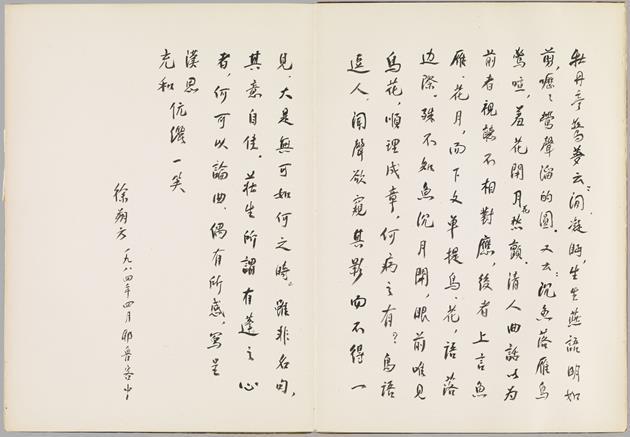 牡丹亭驚夢云：閒凝眄，生生燕語明如
剪，嚦〻鶯聲溜的圓。又云：沉魚落雁鳥
驚喧，羞花閉月花愁顫。清人曲話以为
前者視聽不相對應，後者上言魚
雁、花月，而下文單提鳥、花，語落
边際。殊不知魚沉月閉，眼前唯見
鳥花，順理成章，何病之有？鳥語
逗人，聞聲欲窺其影而不得一
見，大是無可如何之時。雖非名句，
其意自佳。莊生所謂有蓬之心
者，何可以論曲。偶有所感，寫呈
漢思
充和伉儷一笑
徐朔方一九八四年四月耶魯客中